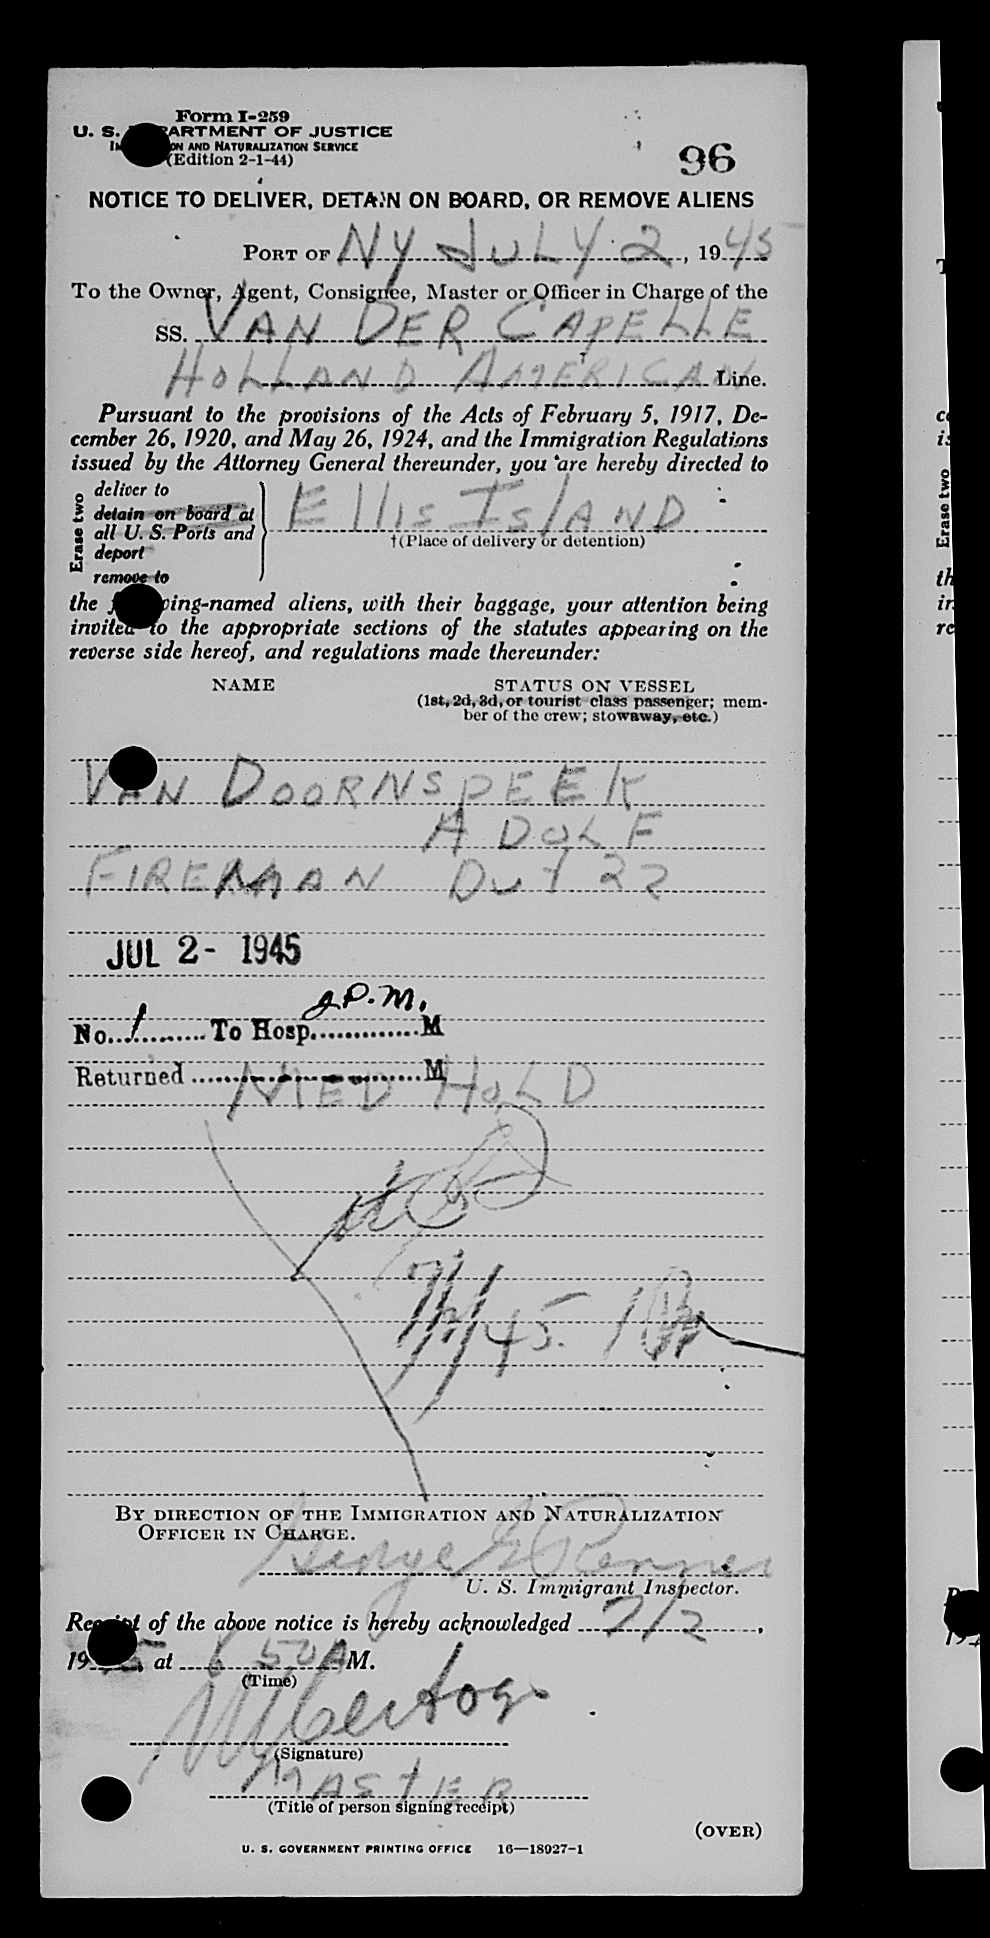 Form I-259
U. S. DEPARTMENT OF JUSTICE
IMMIGRATION AND NATURALIZATION SERVICE
(Edition 2-1-44)
96
NOTICE TO DELIVER, DETAIN ON BOARD, OR REMOVE ALIENS
PORT OF NY JULY 2, 1945
To the Owner, Agent, Consignee, Master or Officer in Charge of the
SS. VAN DER CAPELLE
HOLLAND AMERICAN Line.
Pursuant to the provisions of the Acts of February 5, 1917, De-
cember 26, 1920, and May 26, 1924, and the Immigration Regulations
issued by the Attorney General thereunder, you are hereby directed to
Erase two
deliver to
detain on board at
all U. S. Ports and
deport
remove to
Ellis Island
†(Place of delivery or detention)
the following-named aliens, with their baggage, your attention being
invited to the appropriate sections of the statutes appearing on the
reverse side hereof, and regulations made thereunder:
NAME STATUS ON VESSEL
(1st, 2d, 3d, or tourist class passenger; mem-
ber of the crew; stowaway, etc.)
VAN DOORNSPEEK
ADOLF
FIREMAN Dut 22
JUL 2- 1945
No. 1 To Hosp. M
Returned M
MED HOLD
BY DIRECTION OF THE IMMIGRATION AND NATURALIZATION
OFFICER IN CHARGE.
George Renner
U. S. Immigrant Inspector.
Receipt of the above notice is hereby acknowledged 7/2,
1945 at 50 A M.
(Time)
(Signature)
MASTER
(Title of person signing receipt)
(OVER)
U. S. GOVERNMENT PRINTING OFFICE 16—18027-1
Erase two